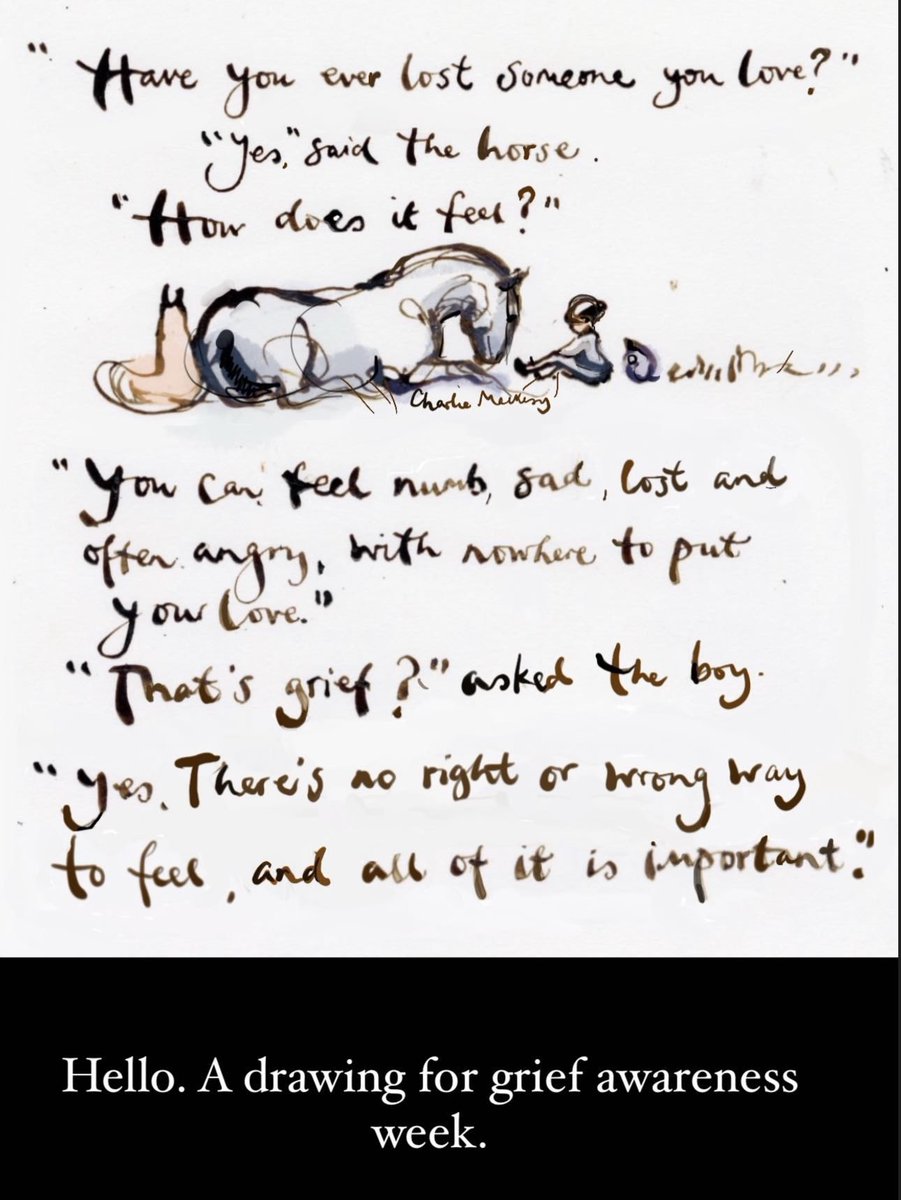 " Have you ever lost someone you love?"
"Yes," said the horse.
"How does it feel?"
Charlie Mackesy
"You can feel numb, sad, lost and
often angry, with nowhere to put
your love."
"That's grief?" asked the boy.
"Yes. There's no right or wrong way
to feel, and all of it is important."
Hello. A drawing for grief awareness
week.